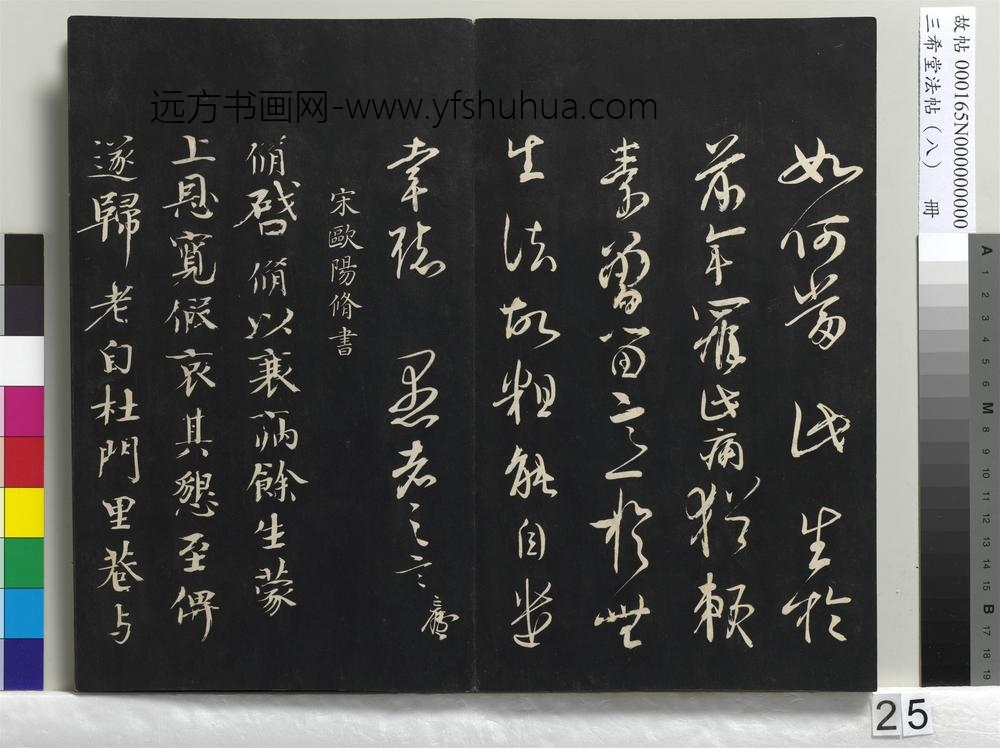 远方书画网-www.yfshuhua.com
故帖 000165N000000000
三希堂法帖(八) 冊
如何當此 生於
前年罹此痛 猶賴
素留意於無
生法 故粗能自遣
幸聽 愚者之言
宋歐陽脩書
脩啓 脩以衰病餘生蒙
上恩寬假哀其懇至俾
遂歸老自杜門里巷与
25
A 1 2 3 4 5 6 M 8 9 10 11 12 13 14 15 B 17 18 19